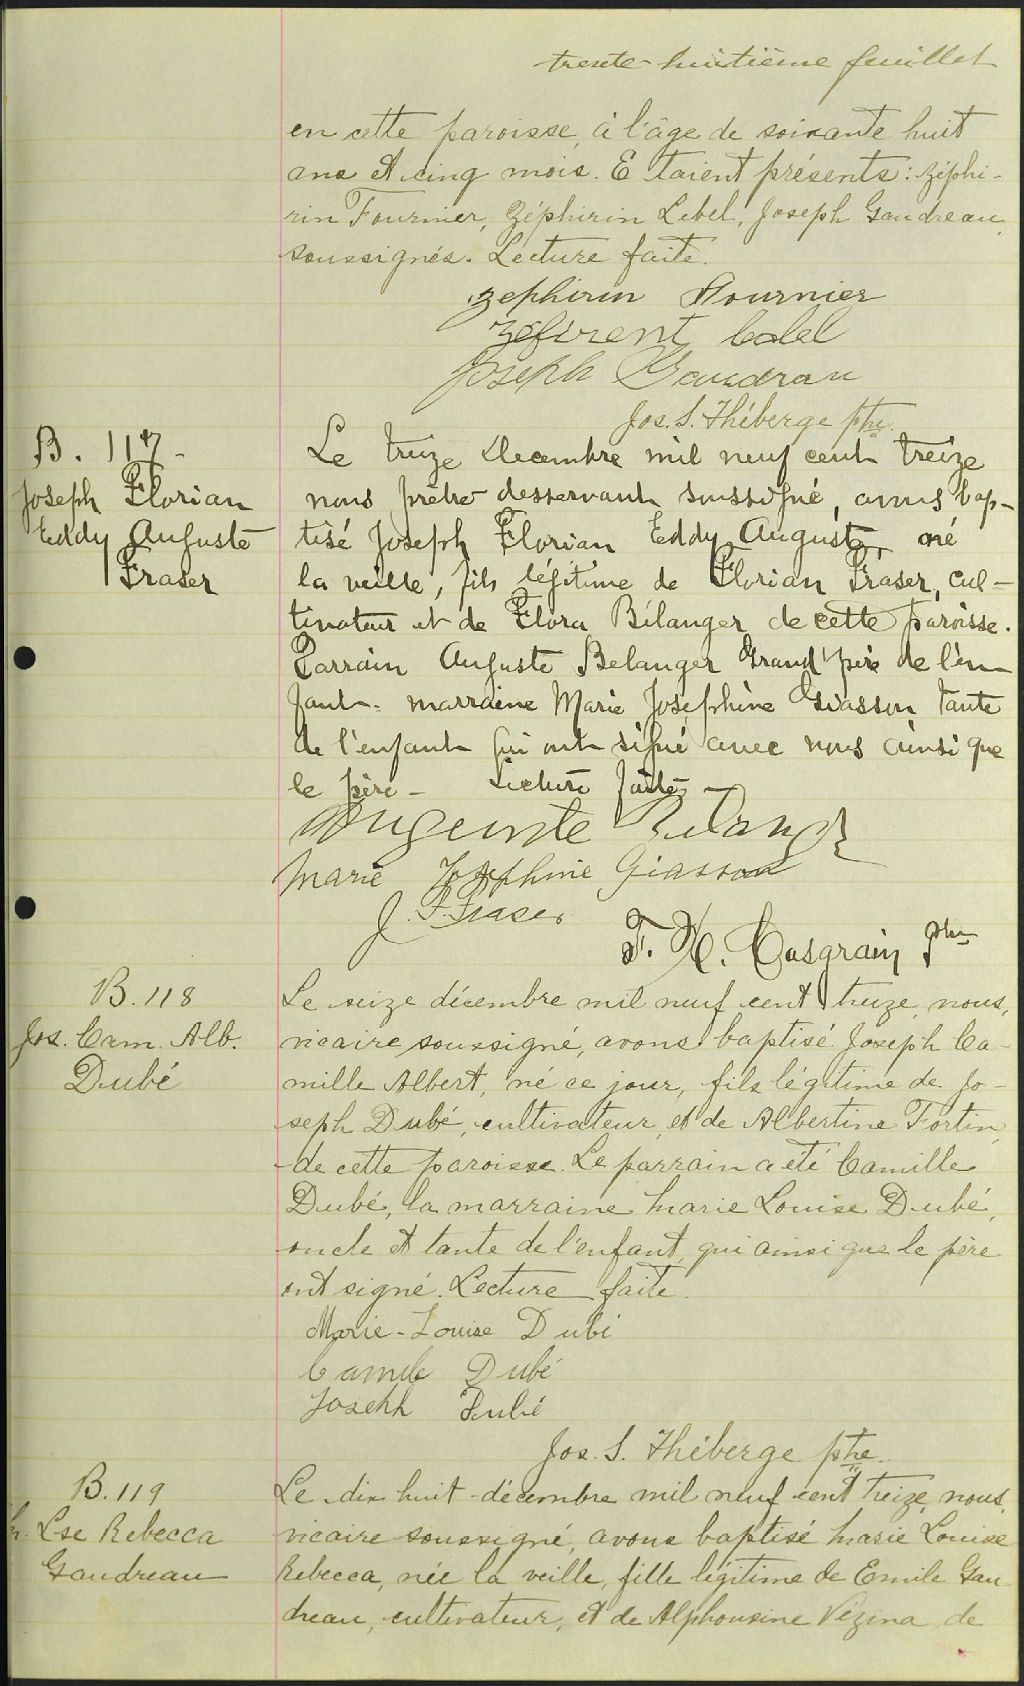 trente-huitième feuillet
en cette paroisse, à l'âge de soixante huit
ans et cinq mois. Etaient présents: Zéphi-
rin Fournier, Zéphirin Lebel, Joseph Gaudreau,
soussignés. Lecture faite.
Zephirin Fournier
Zéfirent Lebel
Joseph Gaudrau
Jos. S. Théberge ptre.
B. 117
Joseph Florian
Eddy Auguste
Fraser
Le treize Decembre mil neuf cent treize
nous prêtre desservant soussigné, avons bap-
tisé Joseph Florian Eddy Auguste, né
la veille, fils légitime de Florian Fraser, cul-
tivateur et de Flora Bélanger de cette paroisse.
Parrain Auguste Belanger Grand'père de l'en
fant. marraine Marie Joséphine Giasson tante
de l'enfant qui ont signé avec nous ainsi que
le père - Lecture faite -
Augeuste Belanger
Marie Josephine Giasson
J. F. Fraser
F. X. Casgrain ptre
B. 118
Jos. Cam. Alb.
Dubé
Le seize décembre mil neuf cent treize, nous,
vicaire soussigné, avons baptisé Joseph Ca-
mille Albert, né ce jour, fils légitime de Jo-
seph Dubé, cultivateur, et de Albertine Fortin,
de cette paroisse. Le parrain a été Camille
Dubé, la marraine Marie Louise Dubé,
oncle et tante de l'enfant, qui ainsi que le père
ont signé. Lecture faite.
Marie-Louise Dubé
Camile Dubé
Joseph Dubé
Jos. S. Théberge ptre.
B. 119
Lse Rebecca
Gaudreau
Le dix huit décembre mil neuf cent treize, nous,
vicaire soussigné, avons baptisé Marie Louise
Rebecca, née la veille, fille légitime de Emile Gau-
dreau, cultivateur, et de Alphonsine Vézina, de